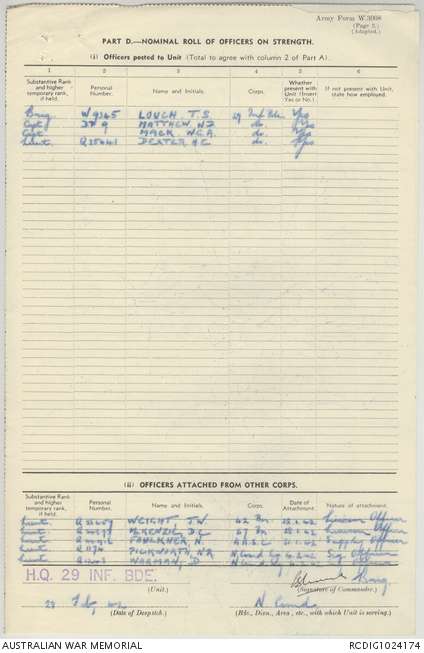 Army Form W.3008
(Page 3.)
(Adapted.)
PART D.—NOMINAL ROLL OF OFFICERS ON STRENGTH.
(i) Officers posted to Unit (Total to agree with column 2 of Part A).
1 2 3 4 5 6
Substantive Rank and higher temporary rank, if held. Personal Number. Name and Initials. Corps. Whether present with Unit (Insert Yes or No.) If not present with Unit, state how employed.
Brig W 9365 LOUCH, T.S. 29 Inf Bde Yes
Capt MATTHEW, N.J. do. Yes
Capt MACK, W.G.A. do. Yes
Lieut DEXTER, do. Yes
(ii) OFFICERS ATTACHED FROM OTHER CORPS.
Substantive Rank and higher temporary rank, if held. Personal Number. Name and Initials. Corps. Date of Attachment. Nature of attachment.
Lieut WEIGHT, J.W. 42 Bn Liaison Officer
Lieut McKENZIE, D.C. Liaison Officer
Lieut FAULKNER, N. A.A.S.C. Supply Officer
Lieut PICKWORTH, N.R. Sig Officer
Lieut HARMAN, D.
H.Q. 29 INF. BDE.
(Unit.)
Brig
(Signature of Commander.)
(Date of Despatch.)
N. Comd
(Bde., Divn., Area, etc., with which Unit is serving.)
AUSTRALIAN WAR MEMORIAL
RCDIG1024174